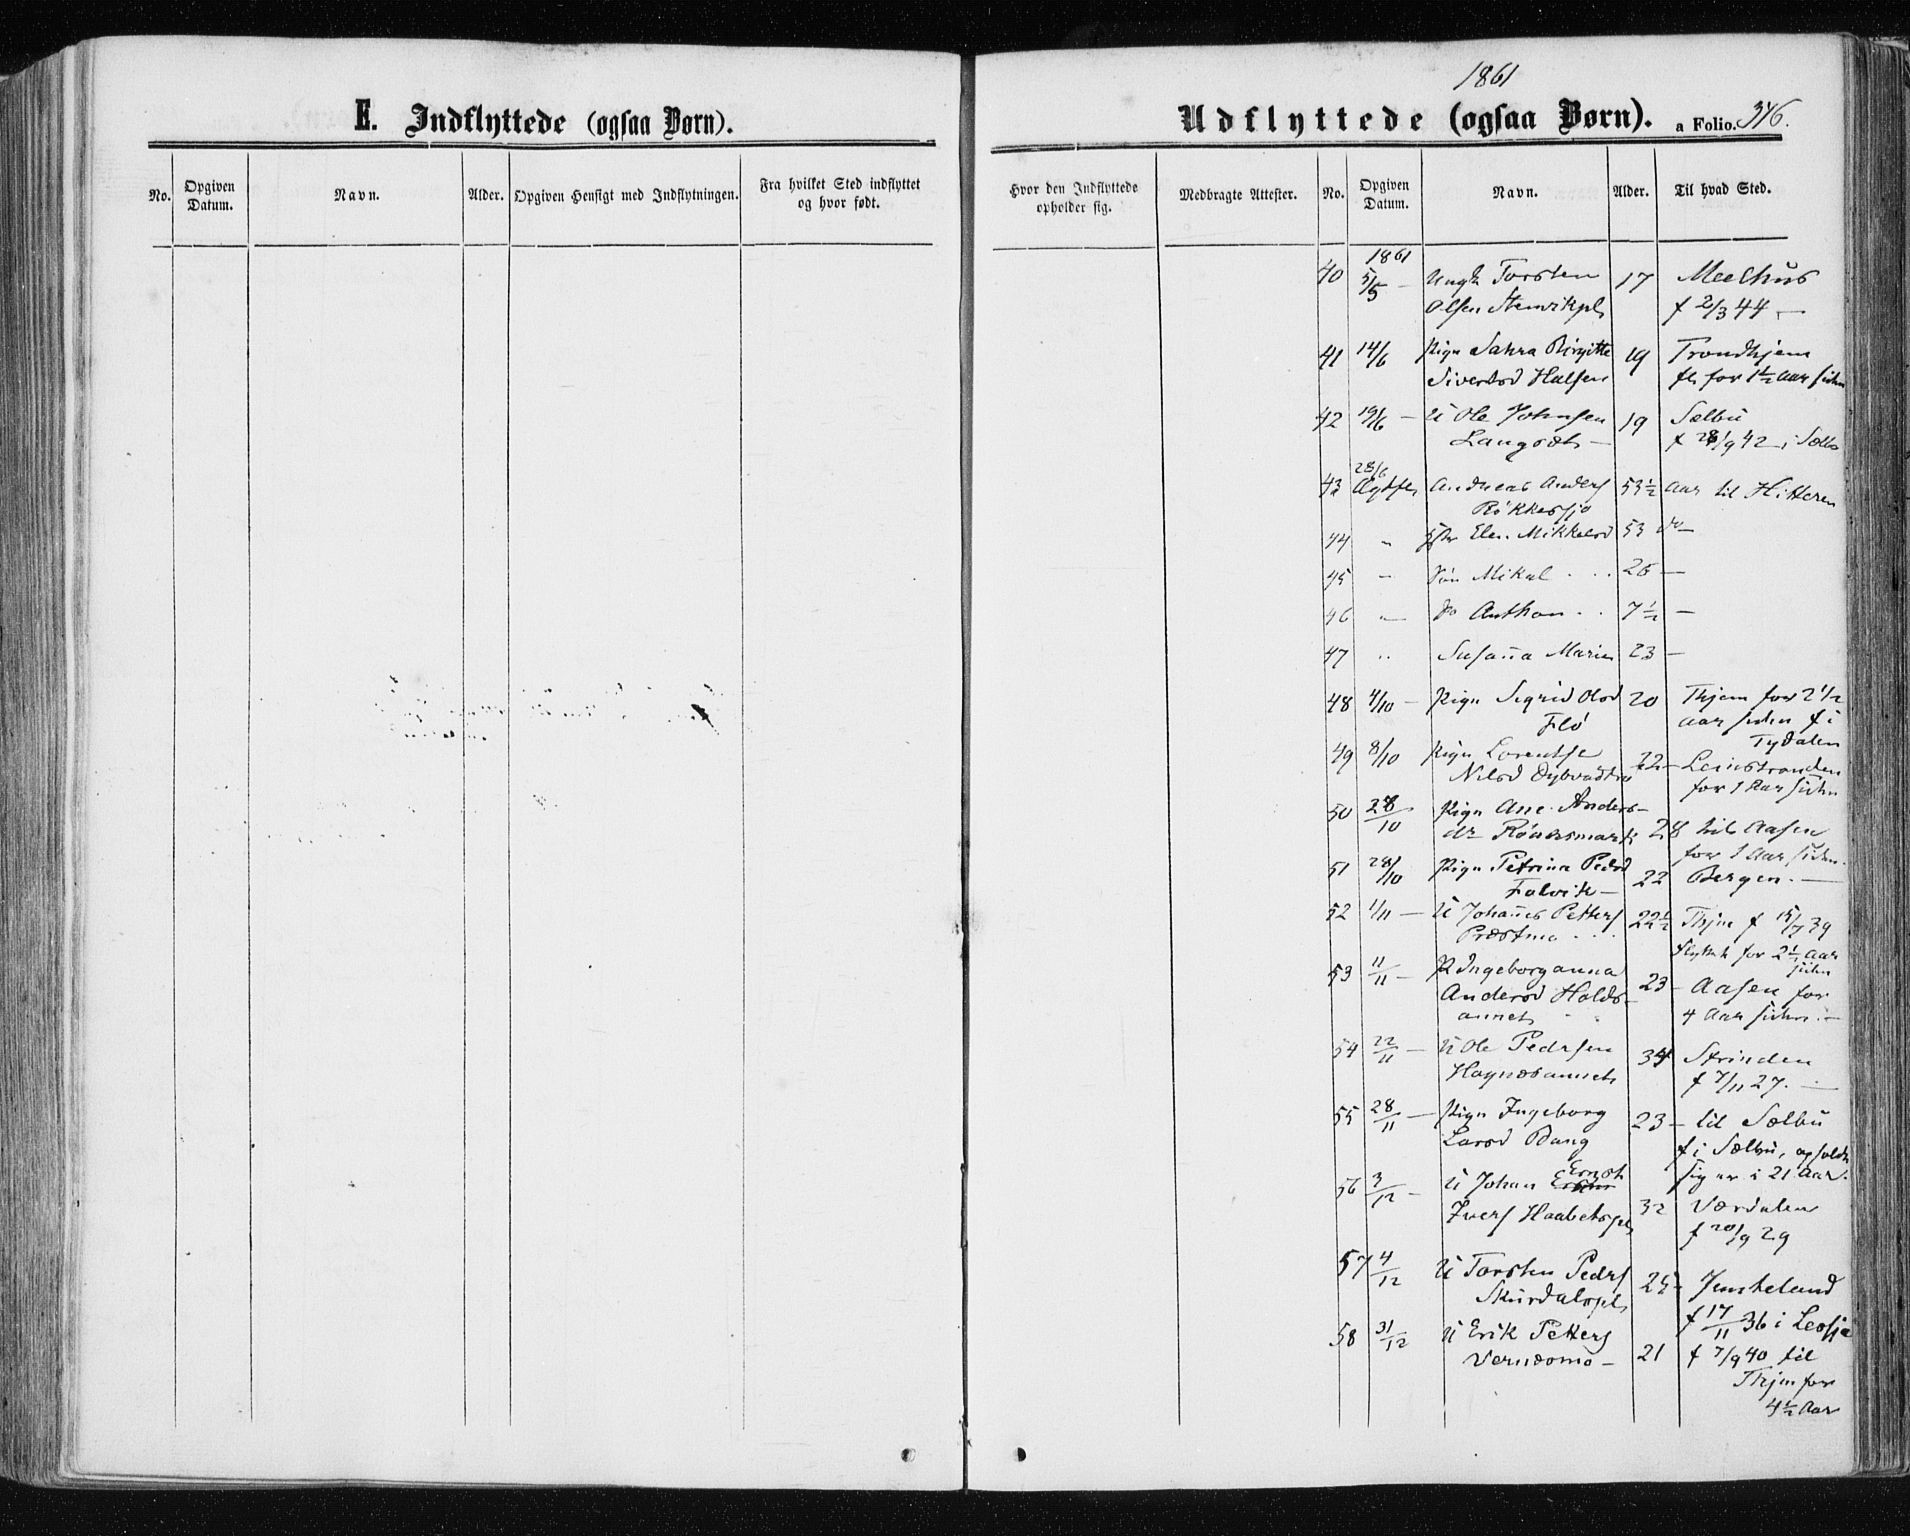 E. Indflyttede (ogsaa Børn).
No.
Opgiven Datum.
Navn.
Alder.
Opgiven Hensigt med Indflytningen.
Fra hvilket Sted indflyttet og hvor født.
1861
Udflyttede (ogsaa Børn). a Folio. 346.
Hvor den Indflyttede opholder sig.
Medbragte Attester.
No.
Opgiven Datum.
Navn.
Alder.
Til hvad Sted.
1861
40 5/5 – Ungk Torsten 17 Meelhus
Olsen Stenvikpl f 2/3 44 –
41 14/6 Pign Sahra Birgitte 19 Trondhjem
Sivertsd Halsen fl. for 1½ Aar siden
42 19/6 – U Ole Johnsen 19 Sælbu
– f 28/9 42 – i Sælbu
28/6
43 Andreas Anders 53½ Aar til Hitteren
44 " Elen Mikkelsd 53 do –
45 " Søn Mikal . . . 25 –
46 " do Anthon . . 7½ –
47 " Susanna Marie 23 –
48 4/10 – Pign Sigrid Olsd 20 Thjem for 2½
Flö Aar siden f i
Tydalen
49 8/10 Pign Lorentse 22 – Leinstranden
Nilsd Dybvad for 1 Aar siden
50 28/10 Pign Ane Anders-
dr 28 til Aasen
for 1 Aar siden.
51 28/10 Pign Petrina Pedsd
Folvik – 22 Bergen. –
52 1/11 – U Johannes Petters 22½ Thjem f 15/7 39
Præstmo . . . flyttet for 2½ Aar
siden
53 11/11 – P Ingeborganna
Andersd Holds- 23 – Aasen for
annet 4 Aar siden. –
54 22/11 – U Ole Pedersen 34 Strinden
annet f 7/11 27. –
55 28/11 – Pign Ingeborg 23 – til Sælbu
Larsd Bang f i Sælbu, opholdt
Ernst sig her i 21 Aar.
56 3/12 – U Johan
Ivers Haabetspl 32 Værdalen
f 20/9 29
57 4/12 U Torsten Peders
Skurdalspl 25 – Jemteland
f 17/11 36 i Leksja
58 31/12 U Erik Petters
Vernesmo – 21 f 7/9 40 til
Thjem for
4½ Aar